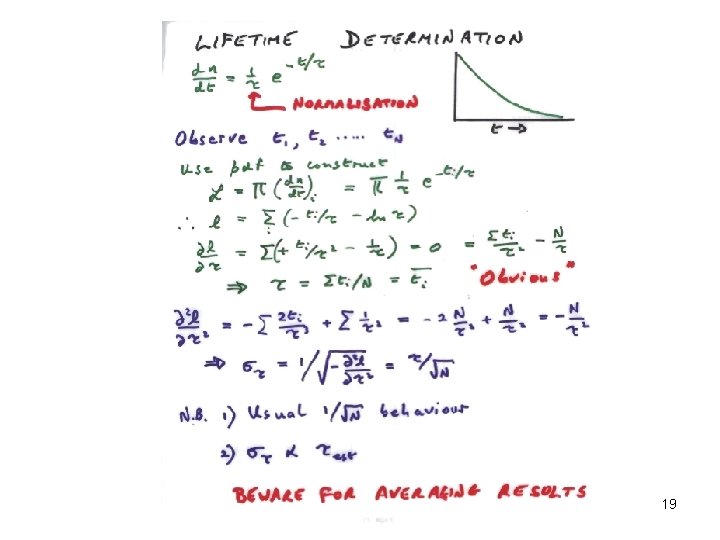 LIFETIME DETERMINATION
dn/dt = 1/τ e^(-t/τ)
NORMALISATION
t →
Observe t₁, t₂ ..... t_N
Use pdf to construct
ℒ = Π (dn/dt)ᵢ = Π 1/τ e^(-tᵢ/τ)
∴ ℓ = Σᵢ (-tᵢ/τ - ln τ)
∂ℓ/∂τ = Σ(+tᵢ/τ² - 1/τ) = 0 = Σtᵢ/τ² - N/τ
⇒ τ = Σtᵢ/N = t̄ᵢ "Obvious"
∂²ℓ/∂τ² = -Σ 2tᵢ/τ³ + Σ 1/τ² = -2 N/τ² + N/τ² = -N/τ²
⇒ σ_τ = 1/√(-∂²ℓ/∂τ²) = τ/√N
N.B. 1) Usual 1/√N behaviour
2) σ_τ ∝ τ_est
BEWARE FOR AVERAGING RESULTS
19